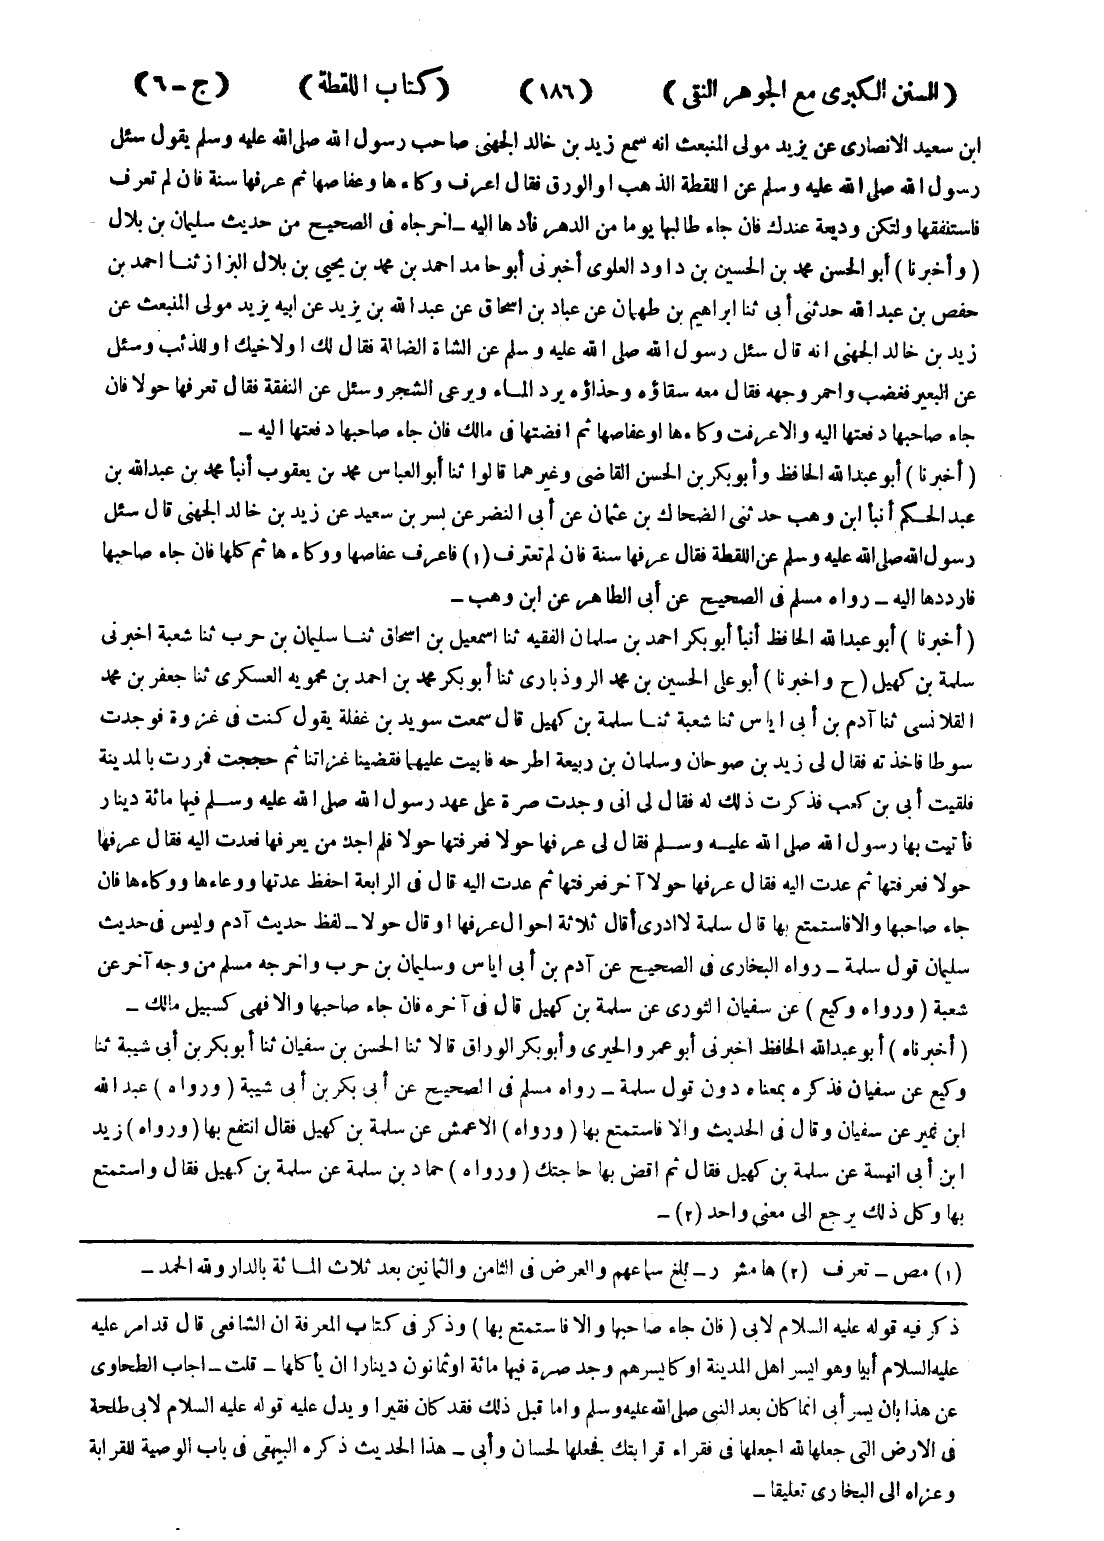 (السنن الكبرى مع الجوهر النقى) (١٨٦) (كتاب اللقطة) (ج ـ ٦)
ابن سعيد الانصارى عن يزيد مولى المنبعث انه سمع زيد بن خالد الجهنى صاحب رسول الله صلى الله عليه وسلم يقول سئل
رسول الله صلى الله عليه وسلم عن اللقطة الذهب او الورق فقال اعرف وكاءها وعفاصها ثم عرفها سنة فان لم تعرف
فاستنفقها ولتكن وديعة عندك فان جاء طالبها يوما من الدهر فأدها اليه ـ اخرجاه فى الصحيح من حديث سليمان بن بلال
(وأخبرنا) أبو الحسن محمد بن الحسين بن داود العلوى أخبرنى أبو حامد احمد بن محمد بن يحيى بن بلال البزاز ثنا احمد بن
حفص بن عبد الله حدثنى أبى ثنا ابراهيم بن طهمان عن عباد بن اسحاق عن عبد الله بن يزيد عن ابيه يزيد مولى المنبعث عن
زيد بن خالد الجهنى انه قال سئل رسول الله صلى الله عليه وسلم عن الشاة الضالة فقال لك او لاخيك او للذئب وسئل
عن البعير فغضب واحمر وجهه فقال معه سقاؤه وحذاؤه يرد الماء ويرعى الشجر وسئل عن النفقة فقال تعرفها حولا فان
جاء صاحبها دفعتها اليه والا عرفت وكاءها او عفاصها ثم افضتها فى مالك فان جاء صاحبها دفعتها اليه ـ
(أخبرنا) أبو عبد الله الحافظ وأبو بكر بن الحسن القاضى وغيرهما قالوا ثنا أبو العباس محمد بن يعقوب أنبأ محمد بن عبد الله بن
عبد الحكم أنبأ ابن وهب حدثنى الضحاك بن عثمان عن أبى النضر عن بسر بن سعيد عن زيد بن خالد الجهنى قال سئل
رسول الله صلى الله عليه وسلم عن اللقطة فقال عرفها سنة فان لم تعترف (١) فاعرف عفاصها ووكاءها ثم كلها فان جاء صاحبها
فارددها اليه ـ رواه مسلم فى الصحيح عن أبى الطاهر عن ابن وهب ـ
(أخبرنا) أبو عبد الله الحافظ أنبأ أبو بكر احمد بن سلمان الفقيه ثنا اسمعيل بن اسحاق ثنا سليمان بن حرب ثنا شعبة اخبرنى
سلمة بن كهيل (ح واخبرنا) أبو على الحسين بن محمد الروذبارى ثنا أبو بكر محمد بن احمد بن محمويه العسكرى ثنا جعفر بن محمد
القلانسى ثنا آدم بن أبى اياس ثنا شعبة ثنا سلمة بن كهيل قال سمعت سويد بن غفلة يقول كنت فى غزوة فوجدت
سوطا فاخذته فقال لى زيد بن صوحان وسلمان بن ربيعة اطرحه فابيت عليهما فقضينا غزاتنا ثم حججت فمررت بالمدينة
فلقيت أبى بن كعب فذكرت ذلك له فقال لى انى وجدت صرة على عهد رسول الله صلى الله عليه وسلم فيها مائة دينار
فأتيت بها رسول الله صلى الله عليه وسلم فقال لى عرفها حولا فعرفتها حولا فلم اجد من يعرفها فعدت اليه فقال عرفها
حولا فعرفتها ثم عدت اليه فقال عرفها حولا آخر فعرفتها ثم عدت اليه قال فى الرابعة احفظ عدتها ووعاءها ووكاءها فان
جاء صاحبها والا فاستمتع بها قال سلمة لا ادرى أقال ثلاثة احوال عرفها او قال حولا ـ لفظ حديث آدم وليس فى حديث
سليمان قول سلمة ـ رواه البخارى فى الصحيح عن آدم بن أبى اياس وسليمان بن حرب واخرجه مسلم من وجه آخر عن
شعبة (ورواه وكيع) عن سفيان الثورى عن سلمة بن كهيل قال فى آخره فان جاء صاحبها والا فهى كسبيل مالك ـ
(أخبرناه) أبو عبد الله الحافظ اخبرنى أبو عمرو الحيرى وأبو بكر الوراق قالا ثنا الحسن بن سفيان ثنا أبو بكر بن أبى شيبة ثنا
وكيع عن سفيان فذكره بمعناه دون قول سلمة ـ رواه مسلم فى الصحيح عن أبى بكر بن أبى شيبة (ورواه) عبد الله
ابن نمير عن سفيان وقال فى الحديث والا فاستمتع بها (ورواه) الاعمش عن سلمة بن كهيل فقال انتفع بها (ورواه) زيد
ابن أبى انيسة عن سلمة بن كهيل فقال ثم اقض بها حاجتك (ورواه) حماد بن سلمة عن سلمة بن كهيل فقال واستمتع
بها وكل ذلك يرجع الى معنى واحد (٢) ـ
(١) مص ـ تعرف (٢) هامش ر ـ بلغ سماعهم والعرض فى الثامن والثمانين بعد ثلاث المائة بالدار ولله الحمد ـ
ذكر فيه قوله عليه السلام لابى (فان جاء صاحبها والا فاستمتع بها) وذكر فى كتاب المعرفة ان الشافعى قال قد امر عليه
عليه السلام أبيا وهو ايسر اهل المدينة او كايسرهم وجد صرة فيها مائة او ثمانون دينارا ان يأكلها ـ قلت ـ اجاب الطحاوى
عن هذا بان يسر أبى انما كان بعد النبى صلى الله عليه وسلم واما قبل ذلك فقد كان فقيرا ويدل عليه قوله عليه السلام لابى طلحة
فى الارض التى جعلها لله اجعلها فى فقراء قرابتك فجعلها لحسان وأبى ـ هذا الحديث ذكره البيهقى فى باب الوصية للقرابة
وعزاه الى البخارى تعليقا ـ